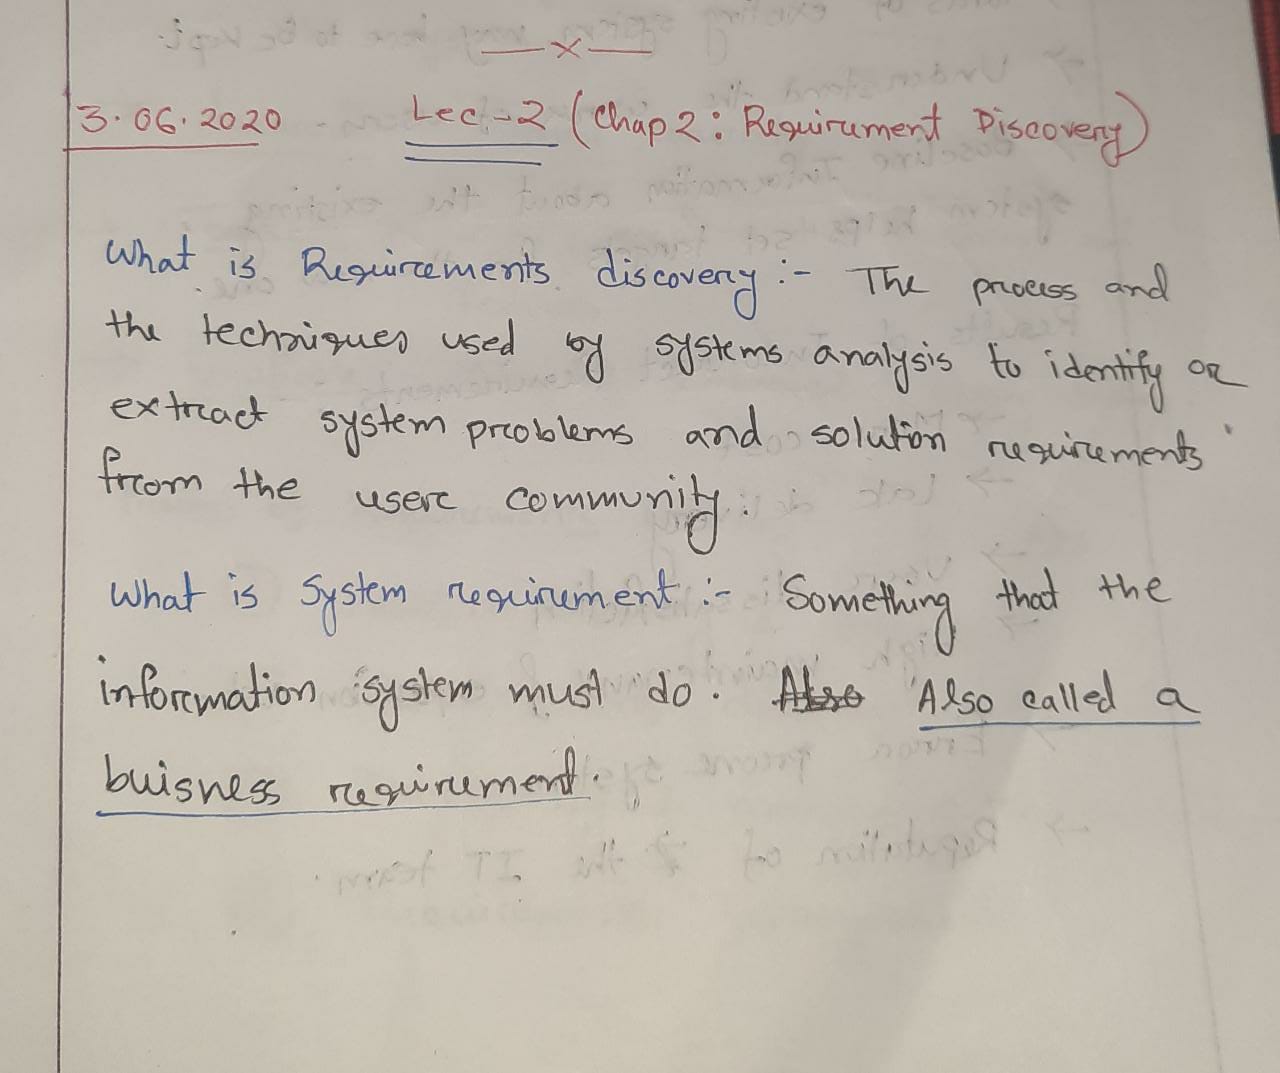 —x—
3.06.2020 Lec-2 (Chap2: Requirement Discovery)
What is Requirements discovery :- The process and
the techniques used by systems analysis to identify or
extract system problems and solution requirements
from the user community.
What is System requirement :- Something that the
information system must do. Also Also called a
buisness requirement.